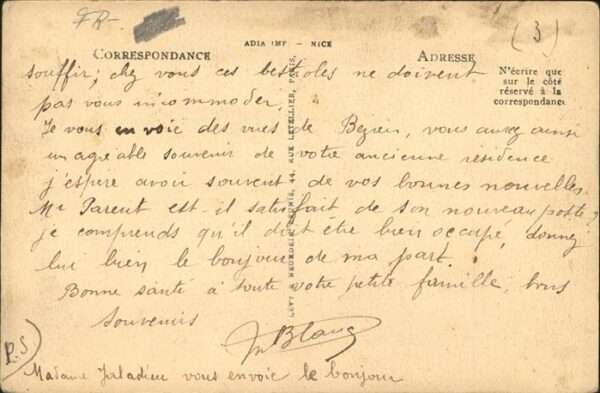 FR-
(3)
ADIA IMP - NICE
CORRESPONDANCE
ADRESSE
N'écrire que
sur le côté
réservé à la
correspondance
souffrir; chez vous ces bestioles ne doivent
pas vous incommoder.
Je vous envoie des vues de Bezien, vous aurez ainsi
un agréable souvenir de votre ancienne résidence
j'espère avoir souvent de vos bonnes nouvelles.
Mr Parent est-il satisfait de son nouveau poste?
je comprends qu'il doit être bien occupé, donnez
lui bien le bonjour de ma part.
Bonne santé à toute votre petite famille, bons
souvenirs
Blanc
P.S
Madame Jaladieu vous envoie le bonjour
LEVY & NEURDEIN RÉUNIS, 44, RUE LETELLIER, PARIS